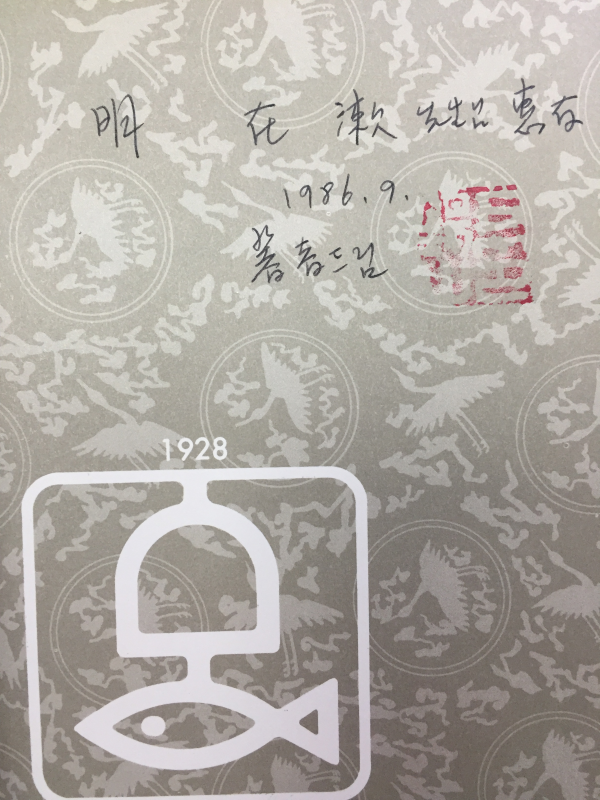 明 在 漱 先生님 惠存
1986. 9.
著者드림
1928